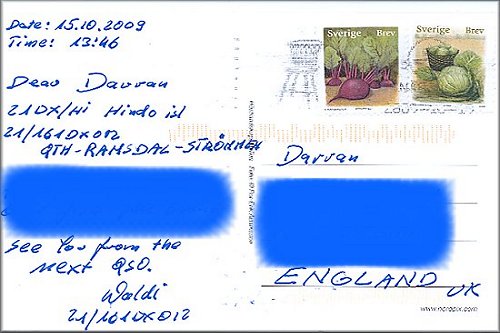 Date: 15.10.2009
Time: 13:46
Dear Darran
21DX/Hi Hindo isl
21/161DX012
QTH-RAMSDAL-STRÖMMEN
See You from the
next QSO.
Waldi
21/161DX012
Sverige Brev
Sverige Brev
Darran
ENGLAND UK